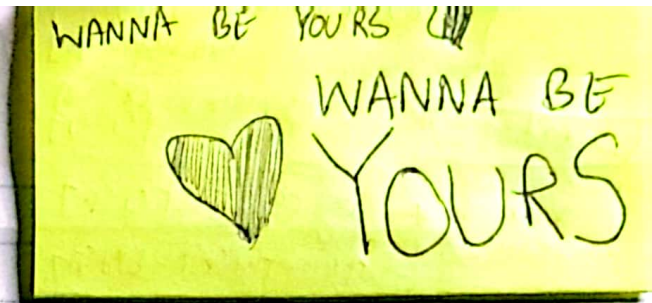 WANNA BE YOURS
WANNA BE
YOURS